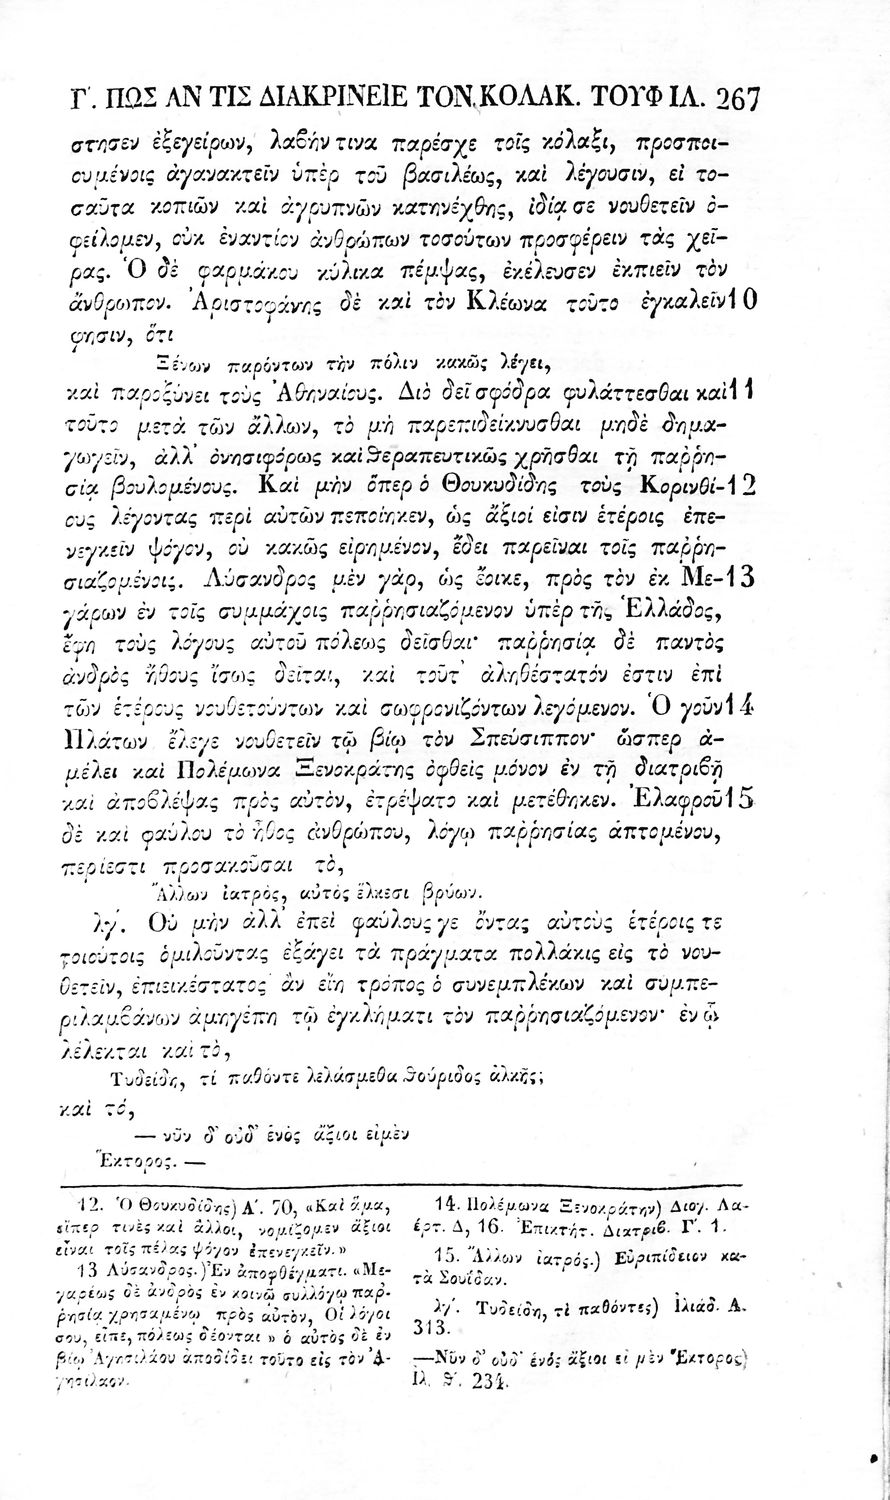 Γ΄. ΠΩΣ ΑΝ ΤΙΣ ΔΙΑΚΡΙΝΕΙΕ ΤΟΝ ΚΟΛΑΚ. ΤΟΥ ΦΙΛ. 267
στησεν ἐξεγείρων, λαβήν τινα παρέσχε τοῖς κόλαξι, προσποι-
ουμένοις ἀγανακτεῖν ὑπὲρ τοῦ βασιλέως, καὶ λέγουσιν, εἰ το-
σαῦτα κοπιῶν καὶ ἀγρυπνῶν κατηνέχθης, ἰδίᾳ σε νουθετεῖν ὀ-
φείλομεν, οὐκ ἐναντίον ἀνθρώπων τοσούτων προσφέρειν τὰς χεῖ-
ρας. Ὁ δὲ φαρμάκου κύλικα πέμψας, ἐκέλευσεν ἐκπιεῖν τὸν
ἄνθρωπον. Ἀριστοφάνης δὲ καὶ τὸν Κλέωνα τοῦτο ἐγκαλεῖν 10
φησιν, ὅτι
Ξένων παρόντων τὴν πόλιν κακῶς λέγει,
καὶ παροξύνει τοὺς Ἀθηναίους. Διὸ δεῖ σφόδρα φυλάττεσθαι καὶ 11
τοῦτο μετὰ τῶν ἄλλων, τὸ μὴ παρεπιδείκνυσθαι μηδὲ δημα-
γωγεῖν, ἀλλ' ὀνησιφόρως καὶ θεραπευτικῶς χρῆσθαι τῇ παῤῥη-
σίᾳ βουλομένους. Καὶ μὴν ὅπερ ὁ Θουκυδίδης τοὺς Κορινθί- 12
ους λέγοντας περὶ αὐτῶν πεποίηκεν, ὡς ἄξιοί εἰσιν ἑτέροις ἐπε-
νεγκεῖν ψόγον, οὐ κακῶς εἰρημένον, ἔδει παρεῖναι τοῖς παῤῥη-
σιαζομένοις. Λύσανδρος μὲν γὰρ, ὡς ἔοικε, πρὸς τὸν ἐκ Με- 13
γάρων ἐν τοῖς συμμάχοις παῤῥησιαζόμενον ὑπὲρ τῆς Ἑλλάδος,
ἔφη τοὺς λόγους αὐτοῦ πόλεως δεῖσθαι· παῤῥησία δὲ παντὸς
ἀνδρὸς ἤθους ἴσως δεῖται, καὶ τοῦτ' ἀληθέστατόν ἐστιν ἐπὶ
τῶν ἑτέρους νουθετούντων καὶ σωφρονιζόντων λεγόμενον. Ὁ γοῦν 14
Πλάτων ἔλεγε νουθετεῖν τῷ βίῳ τὸν Σπεύσιππον· ὥσπερ ἀ-
μέλει καὶ Πολέμωνα Ξενοκράτης ὀφθεὶς μόνον ἐν τῇ διατριβῇ
καὶ ἀποβλέψας πρὸς αὐτὸν, ἐτρέψατο καὶ μετέθηκεν. Ἐλαφροῦ 15
δὲ καὶ φαύλου τὸ ἦθος ἀνθρώπου, λόγῳ παῤῥησίας ἁπτομένου,
περίεστι προσακοῦσαι τὸ,
Ἄλλων ἰατρὸς, αὐτὸς ἕλκεσι βρύων.
λγ΄. Οὐ μὴν ἀλλ' ἐπεὶ φαύλους γε ὄντας αὐτοὺς ἑτέροις τε
τοιούτοις ὁμιλοῦντας ἐξάγει τὰ πράγματα πολλάκις εἰς τὸ νου-
θετεῖν, ἐπιεικέστατος ἂν εἴη τρόπος ὁ συνεμπλέκων καὶ συμπε-
ριλαμβάνων ἁμηγέπη τῷ ἐγκλήματι τὸν παῤῥησιαζόμενον· ἐν ᾧ
λέλεκται καὶ τὸ,
Τυδείδη, τί παθόντε λελάσμεθα θούριδος ἀλκῆς;
καὶ τό,
— νῦν δ' οὐδ' ἑνός ἄξιοι εἰμὲν
Ἕκτορος. —
12. Ὁ Θουκυδίδης) Α΄. 70, «Καὶ ἅμα,
εἴπερ τινὲς καὶ ἄλλοι, νομίζομεν ἄξιοι
εἶναι τοῖς πέλας ψόγον ἐπενεγκεῖν.»
13 Λύσανδρος.) Ἐν ἀποφθέγματι. «Με-
γαρέως δὲ ἀνδρὸς ἐν κοινῷ συλλόγῳ παῤ-
ῥησίᾳ χρησαμένῳ πρὸς αὐτὸν, Οἱ λόγοι
σου, εἶπε, πόλεως δέονται » ὁ αὐτὸς δὲ ἐν
βίῳ Ἀγησιλάου ἀποδίδει τοῦτο εἰς τὸν Ἀ-
γησίλαον.
14. Πολέμωνα Ξενοκράτην) Διογ. Λα-
έρτ. Δ, 16. Ἐπικτήτ. Διατριβ. Γ΄. 1.
15. Ἄλλων ἰατρός.) Εὐριπίδειον κα-
τὰ Σουΐδαν.
λγ΄. Τυδείδη, τί παθόντες) Ἰλιάδ. Λ.
313.
—Νῦν δ' οὐδ' ἑνός ἄξιοι εἰ μὲν Ἕκτορος)
Ἰλ. Θ΄. 234.